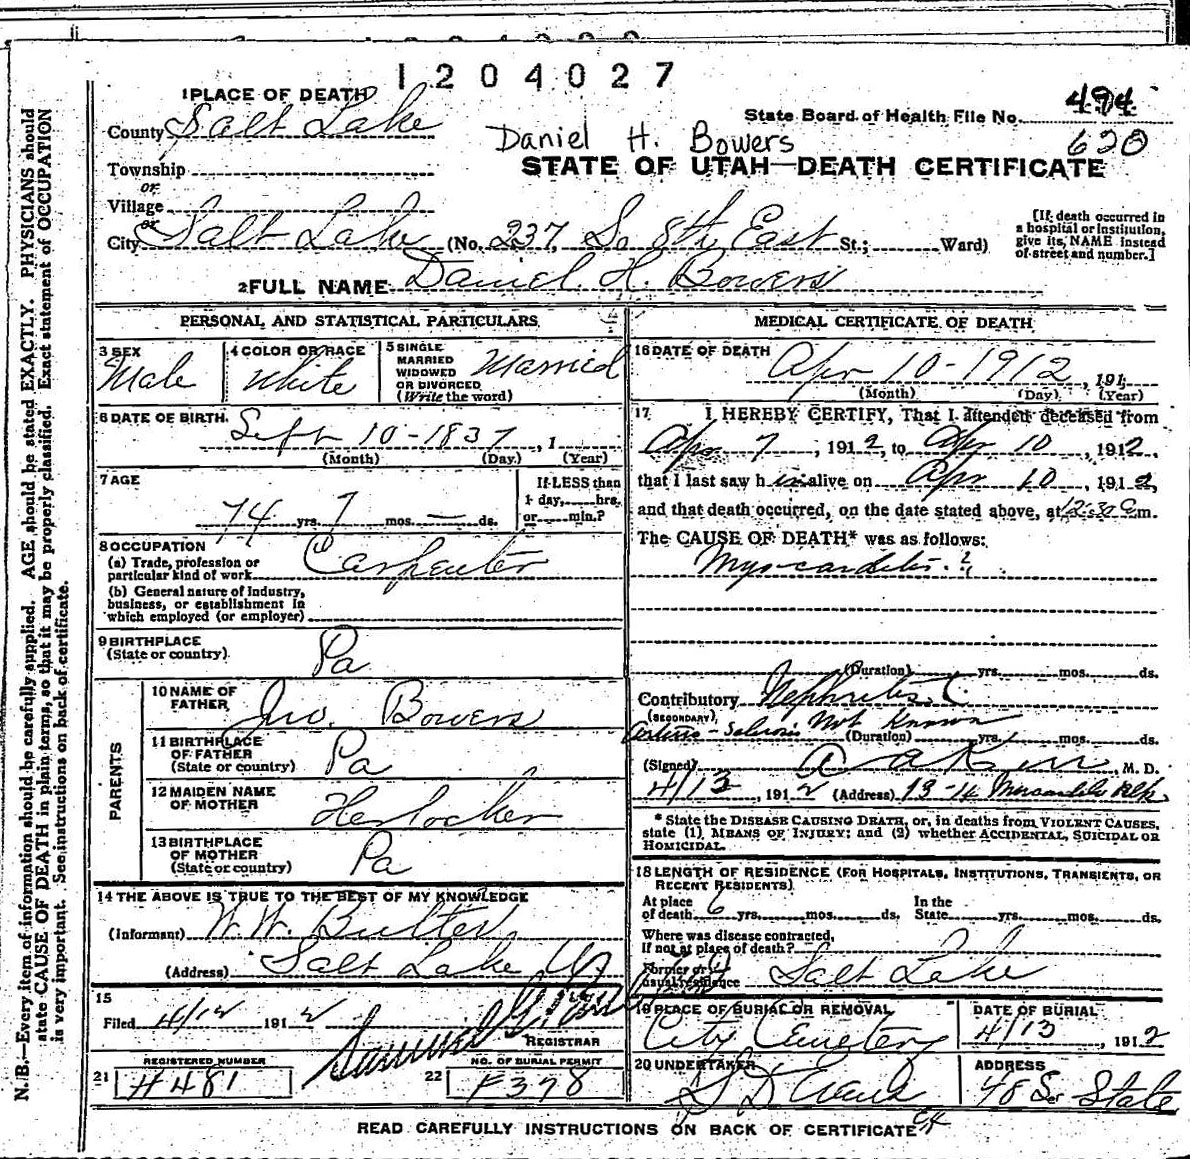 1204027
1 PLACE OF DEATH
County Salt Lake
State Board of Health File No. 494
620
Daniel H. Bowers
STATE OF UTAH—DEATH CERTIFICATE
Township
or
Village
or
City Salt Lake (No. 237 So 8th East St.; Ward)
[If death occurred in
a hospital or institution,
give its NAME instead
of street and number.]
2 FULL NAME Daniel H. Bowers
PERSONAL AND STATISTICAL PARTICULARS
3 SEX
Male
4 COLOR OR RACE
White
5 SINGLE
MARRIED
WIDOWED
OR DIVORCED
(Write the word)
Married
6 DATE OF BIRTH
Sept 10-1837, 1
(Month) (Day) (Year)
7 AGE
74 yrs. 7 mos. — ds.
If LESS than
1 day, hrs.
or min.?
8 OCCUPATION
(a) Trade, profession or
particular kind of work
Carpenter
(b) General nature of Industry,
business, or establishment in
which employed (or employer)
9 BIRTHPLACE
(State or country)
Pa
PARENTS
10 NAME OF
FATHER
Jno. Bowers
11 BIRTHPLACE
OF FATHER
(State or country)
Pa
12 MAIDEN NAME
OF MOTHER
Herlocker
13 BIRTHPLACE
OF MOTHER
(State or country)
Pa
14 THE ABOVE IS TRUE TO THE BEST OF MY KNOWLEDGE
(Informant) W.W. Butler
(Address) Salt Lake
15
Filed 4/12 1912
Samuel G.
REGISTRAR
REGISTERED NUMBER
21 H481
NO. OF BURIAL PERMIT
22 F378
MEDICAL CERTIFICATE OF DEATH
16 DATE OF DEATH
Apr 10-1912, 191
(Month) (Day) (Year)
17 I HEREBY CERTIFY, That I attended deceased from
Apr 7, 1912, to Apr 10, 1912,
that I last saw him alive on Apr 10, 1912,
and that death occurred, on the date stated above, at 12:30 m.
The CAUSE OF DEATH* was as follows:
Myocarditis ?
(Duration) yrs. mos. ds.
Contributory Nephritis. C.
(SECONDARY)
Not Known
(Duration) yrs. mos. ds.
(Signed) M. D.
4/13, 1912 (Address) 13-14 Mercantile Blk
* State the DISEASE CAUSING DEATH, or, in deaths from VIOLENT CAUSES,
state (1) MEANS OF INJURY; and (2) whether ACCIDENTAL, SUICIDAL OR
HOMICIDAL.
18 LENGTH OF RESIDENCE (FOR HOSPITALS, INSTITUTIONS, TRANSIENTS, OR
RECENT RESIDENTS)
At place
of death 6 yrs. mos. ds.
In the
State yrs. mos. ds.
Where was disease contracted,
If not at place of death?
Former or
usual residence
Salt Lake
19 PLACE OF BURIAL OR REMOVAL
City Cemetery
DATE OF BURIAL
4/13, 1912
20 UNDERTAKER
S D Evans
ADDRESS
48 So State
READ CAREFULLY INSTRUCTIONS ON BACK OF CERTIFICATE
N. B.—Every item of information should be carefully supplied. AGE should be stated EXACTLY. PHYSICIANS should
state CAUSE OF DEATH in plain terms, so that it may be properly classified. Exact statement of OCCUPATION
is very important. See instructions on back of certificate.